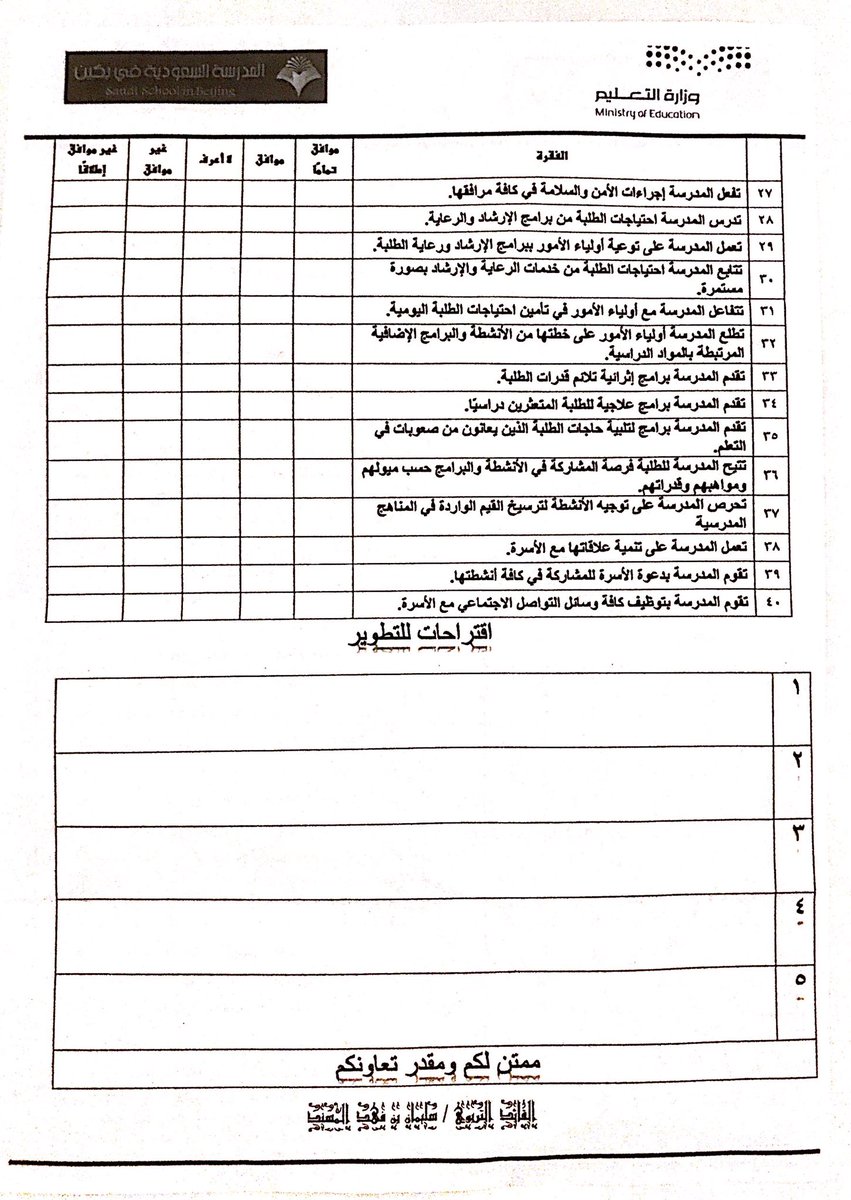 المدرسة السعودية في بكين
Saudi School in Beijing
وزارة التعليم
Ministry of Education
الفقرة
موافق تمامًا
موافق
لا أعرف
غير موافق
غير موافق إطلاقًا
٢٧ تفعل المدرسة إجراءات الأمن والسلامة في كافة مرافقها.
٢٨ تدرس المدرسة احتياجات الطلبة من برامج الإرشاد والرعاية.
٢٩ تعمل المدرسة على توعية أولياء الأمور ببرامج الإرشاد ورعاية الطلبة.
٣٠ تتابع المدرسة احتياجات الطلبة من خدمات الرعاية والإرشاد بصورة
مستمرة.
٣١ تتفاعل المدرسة مع أولياء الأمور في تأمين احتياجات الطلبة اليومية.
٣٢ تطلع المدرسة أولياء الأمور على خطتها من الأنشطة والبرامج الإضافية
المرتبطة بالمواد الدراسية.
٣٣ تقدم المدرسة برامج إثرائية تلائم قدرات الطلبة.
٣٤ تقدم المدرسة برامج علاجية للطلبة المتعثرين دراسيًا.
٣٥ تقدم المدرسة برامج لتلبية حاجات الطلبة الذين يعانون من صعوبات في
التعلم.
٣٦ تتيح المدرسة للطلبة فرصة المشاركة في الأنشطة والبرامج حسب ميولهم
ومواهبهم وقدراتهم.
٣٧ تحرص المدرسة على توجيه الأنشطة لترسيخ القيم الواردة في المناهج
المدرسية
٣٨ تعمل المدرسة على تنمية علاقاتها مع الأسرة.
٣٩ تقوم المدرسة بدعوة الأسرة للمشاركة في كافة أنشطتها.
٤٠ تقوم المدرسة بتوظيف كافة وسائل التواصل الاجتماعي مع الأسرة.
اقتراحات للتطوير
١
٢
٣
٤
٥
ممتن لكم ومقدر تعاونكم
القائد التربوي / سليمان بن فهد المسند